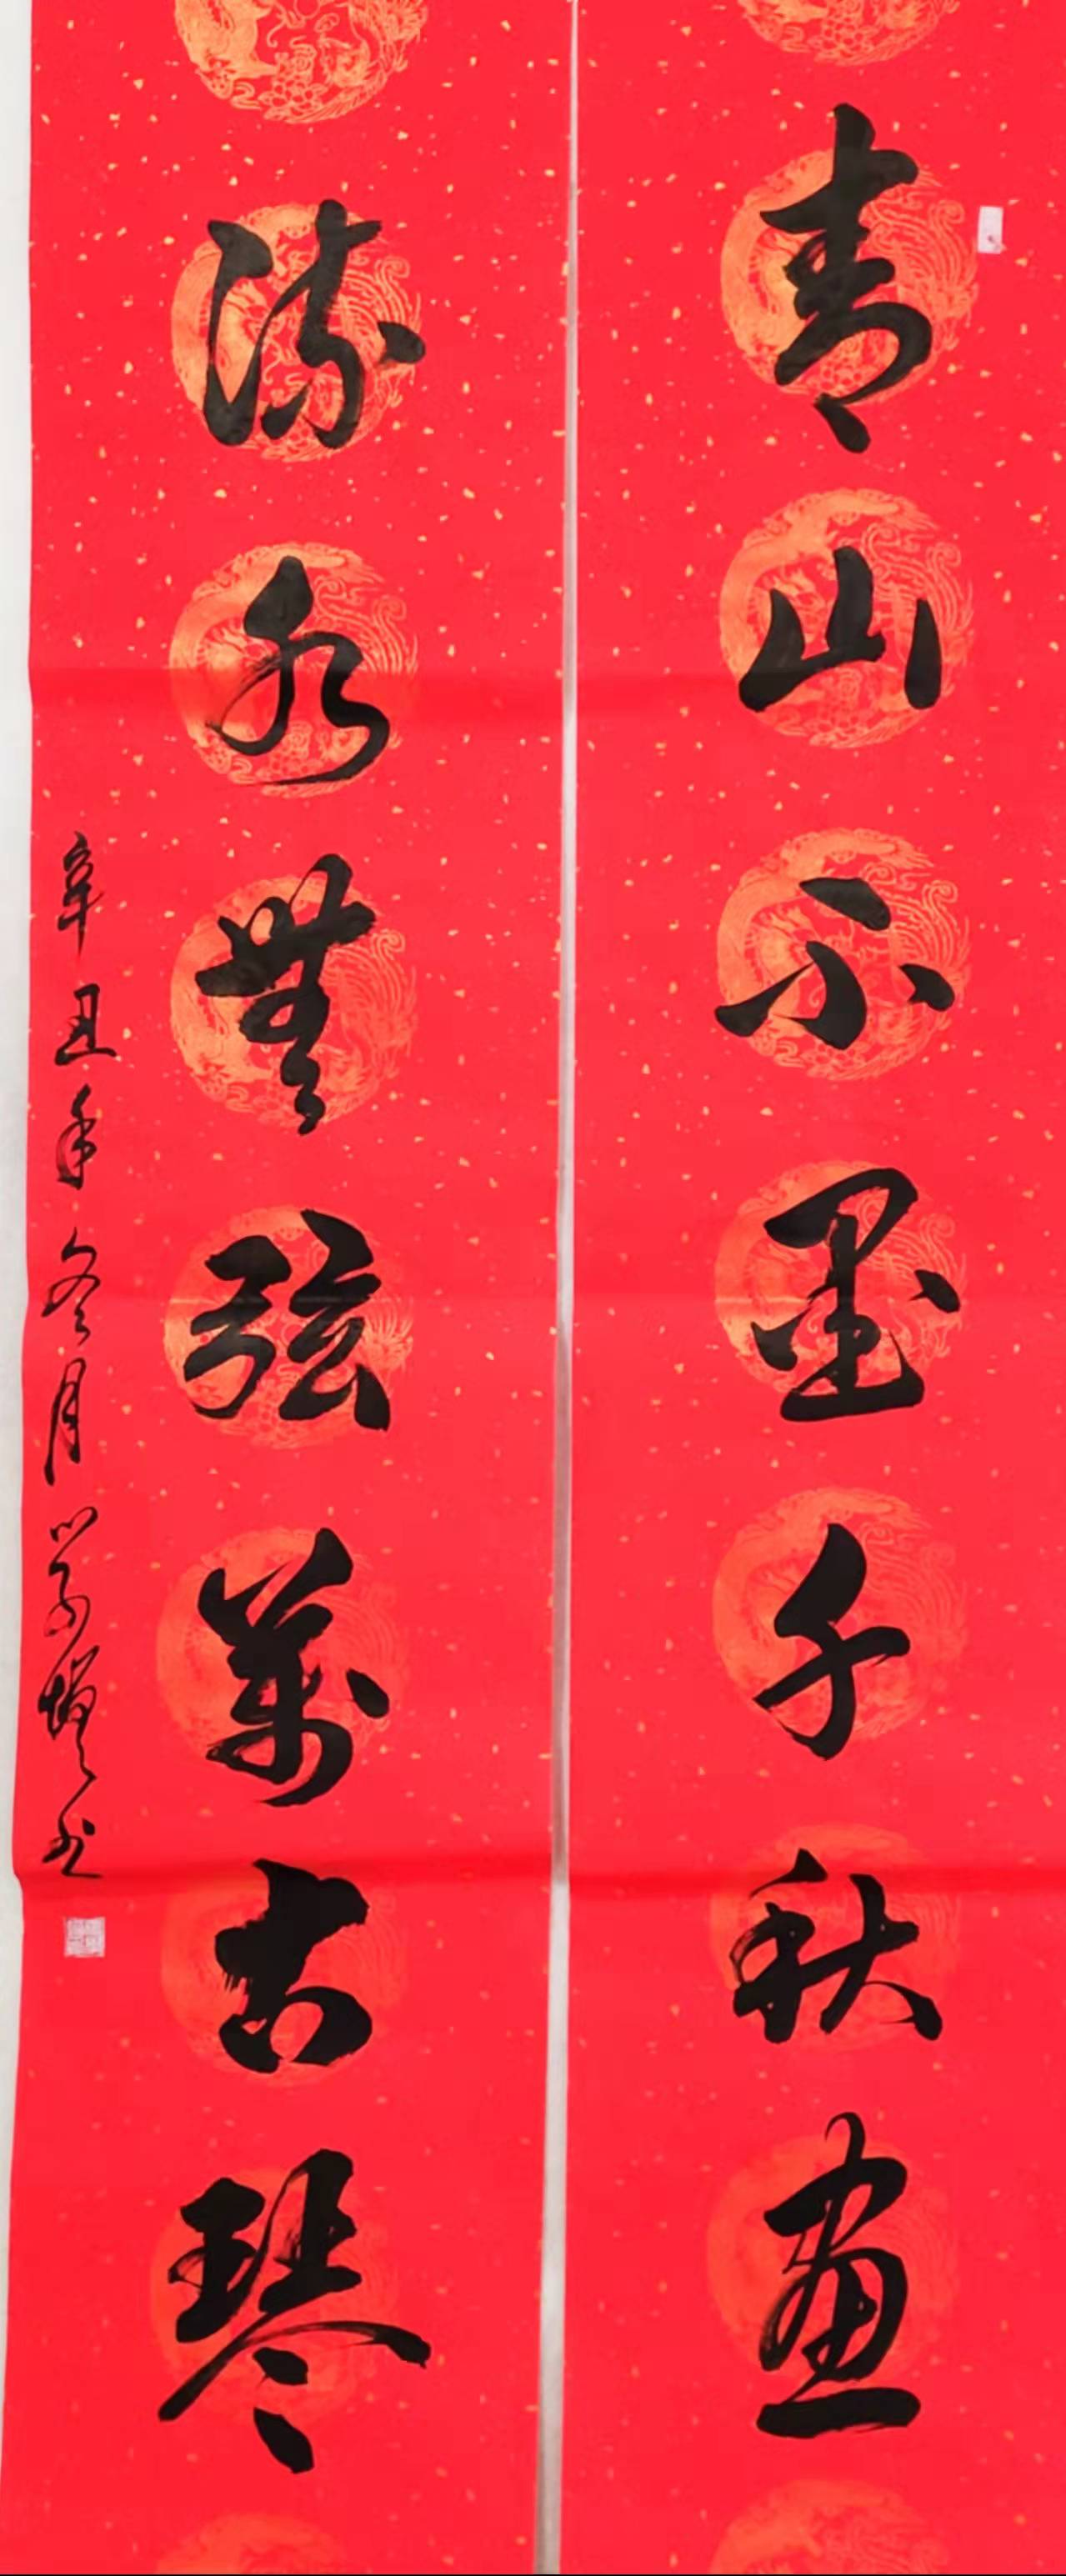 青山不墨千秋画
流水無弦萬古琴
辛丑年冬月學增书